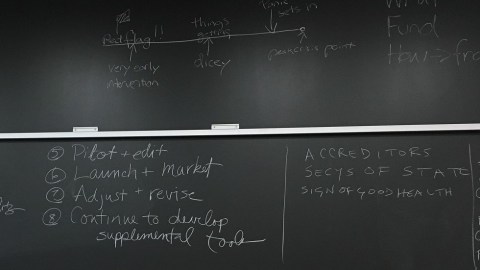 things
getting
sets in
Red flag!!
very early
intervention
dicey
panic point
What
Fund
How
⑤ Pilot + edit
⑥ Launch + market
⑦ Adjust + revise
⑧ Continue to develop
supplemental tools
ACCREDITORS
SECYS OF STATE
SIGN OF GOOD HEALTH